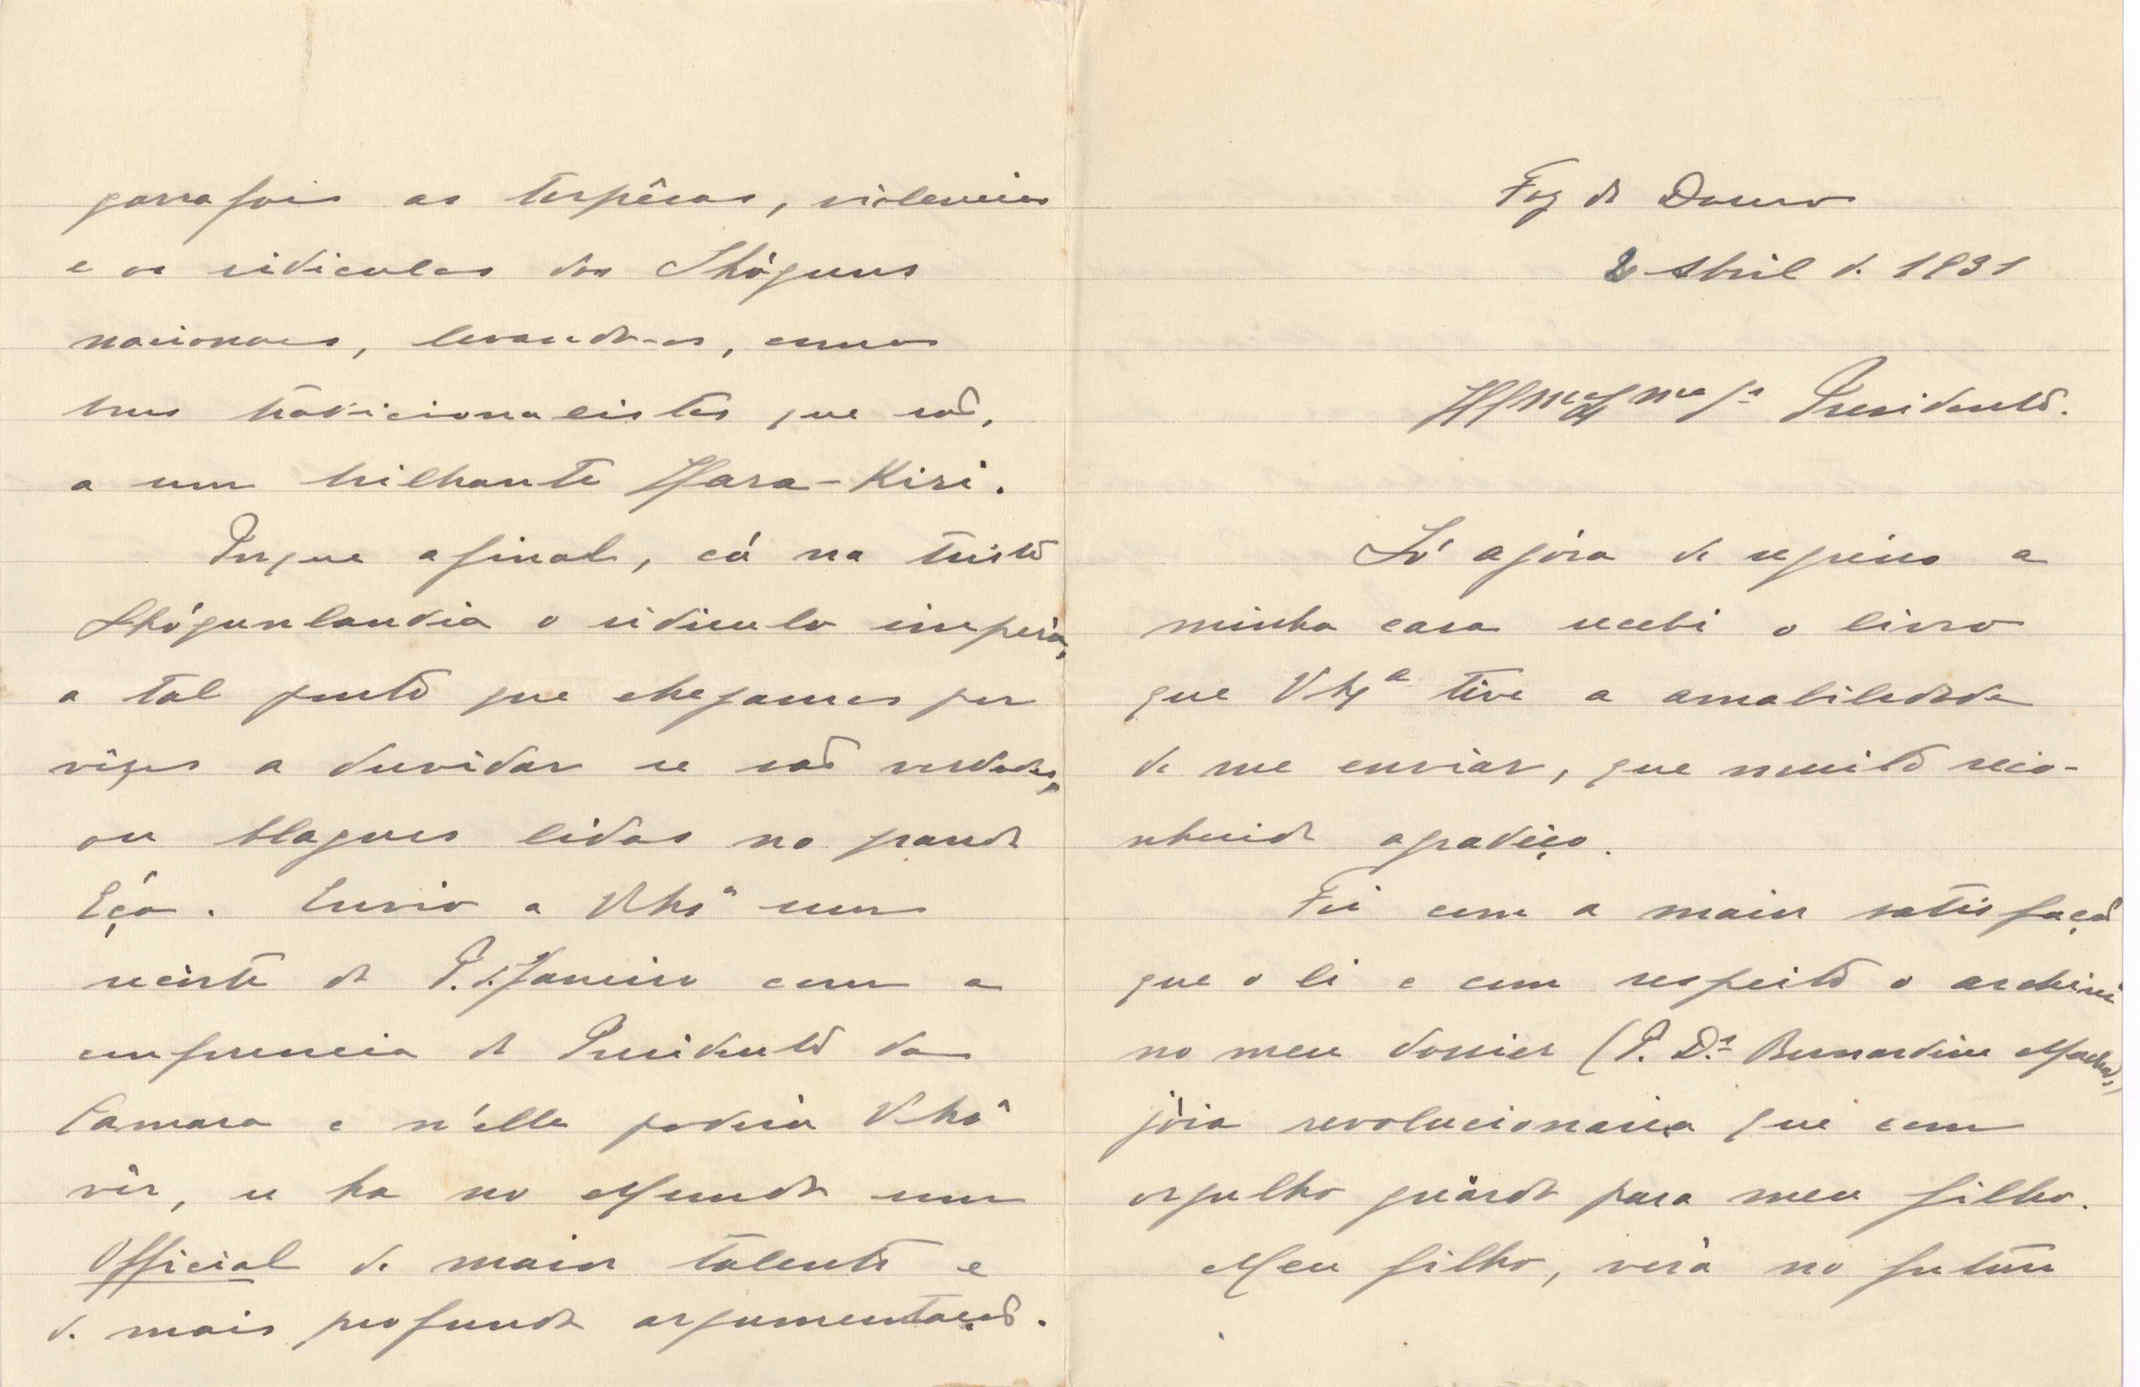 Foz do Douro
2 Abril d. 1931
Presidente.
Só agóra de regrésso a
minha casa recebi o livro
que V. Exª teve a amabilidade
de me enviar, que muito reco-
nhecido agradeço.
Foi com a maior satisfação
que o li e com respeito o archivei
no meu dossier (P. Dr. Bernardino Machado),
jóia revolucionaria que com
orgulho guárdo para meu filho.
Meu filho, verá no futuro
garrafais as torpêsas, violencias
e os ridiculos dos Shóguns
nacionaes, levando-os, como
bons tradicionalistas que são,
a um brilhante Hara-Kiri.
Porque afinal, cá na triste
Shógunlandia o ridiculo impéra,
a tal ponto que chegamos por
vêzes a duvidar se são verdades,
ou blagues lidas no grande
Eça. Envio a V. Exª um
recórte do P. de Janeiro com a
conferencia do Presidente da
Camara e n'élla poderá V. Exª
vêr, se ha no Mundo um
Official de maior talento e
d. mais profunda argumentação.